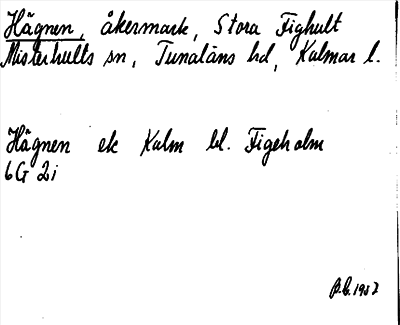 Hägnen, åkermark, Stora Fighult
Misterhults sn, Tunaläns hd, Kalmar l.
Hägnen ek Kalm bl. Figeholm
6G 2i